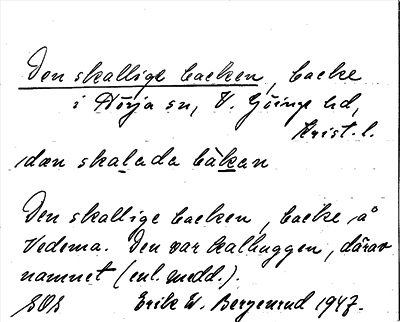 Den skallige backen, backe
i Hörja sn, V. Göinge hd,
Krist. l.
dæn skalada bàkan
Den skallige backen, backe å
Vedema. Den var kalhuggen, därav
namnet (enl. medd.).
SOS Erik W. Bergenrud 1947.